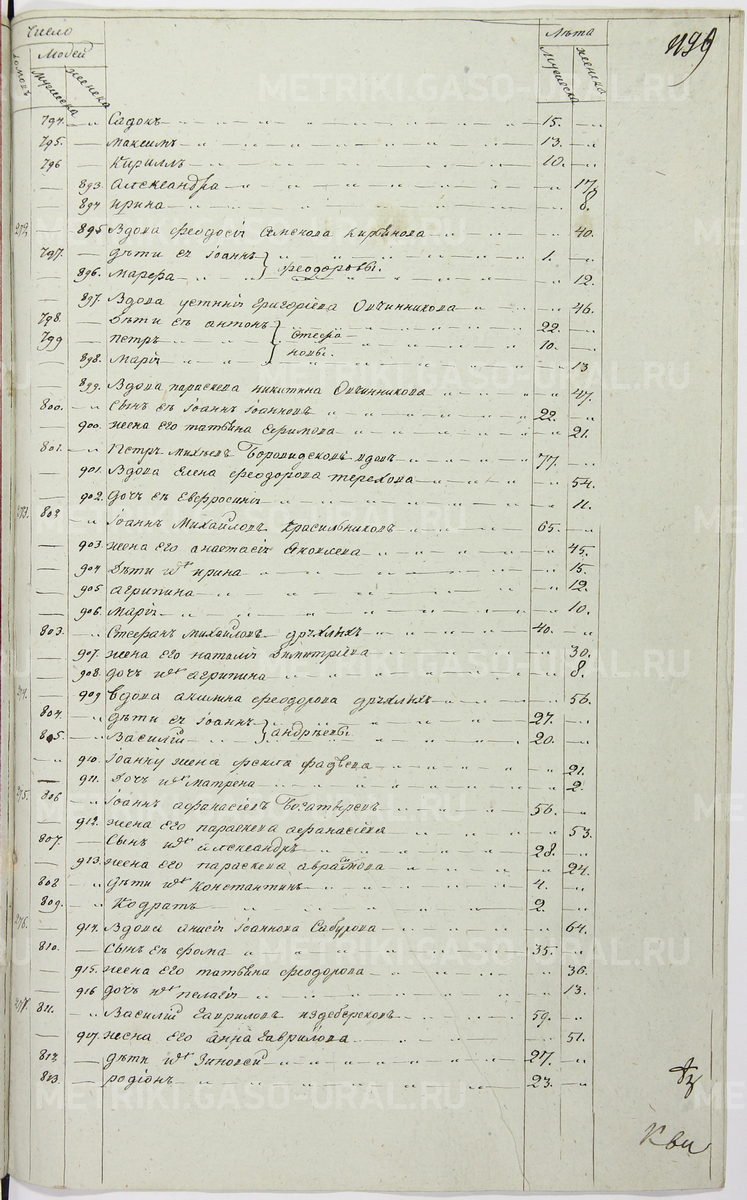 Число Лѣта
домовъ Людей
мужеска женска мужеска женска
794. Садокъ 15.
795. максимъ 13.
796 Кириллъ 10.
893. александра 17
894 ирина 8.
272 895 Вдова феодосiя 40.
797. дѣти ея iоаннъ 1.
феодоровы.
896. Марѳа 12.
897. Вдова устинiя григорiева Овчинникова 46.
798. Дѣти ея антонъ 22.
799 петръ 10.
898. Марiя 13
899. Вдова параскева никитина Овчинникова 47.
800. Сынъ ея iоаннъ iоанновъ 22.
900. жена его татьяна ефимова 21.
801. Петръ вдовъ 77.
901. Вдова Елена феодорова терехова 54.
902. Дочь ея Евфросинiя 11.
273. 802 iоаннъ Михайловъ Красильниковъ 65.
903. жена Его анастасiя Яковлева 45.
904 Дѣти ихъ ирина 15.
905 агрипина 12.
906. Марiя 10.
803. Стефанъ Михайловъ дряхлыхъ 40.
907. жена его наталiя Димитрiева 30.
908. дочь ихъ агрипина 8.
274. 909 вдова акилина феодорова дряхлыхъ 56.
804. дѣти ея iоаннъ 27.
андрѣевы
805. Василiй 20.
910. iоанну жена фекла фадѣева 21.
911. Дочь ихъ матрена 2.
275. 806 iоаннъ афанасiевъ Богатыревъ 56.
912. жена Его параскева афанасiева 53.
807. Сынъ ихъ александръ 28.
913. жена его параскева аврамова 24.
808 дѣти ихъ Константинъ 4.
809. Кодратъ 2
276. 914. Вдова анисiя iоаннова Сабурова 64.
810. Сынъ ея фома 35.
915. жена Его татьяна феодорова 36.
916 дочь ихъ пелагiя 13.
277. 811. Василiй гавриловъ 59.
917. жена его анна гаврилова 51.
812. дѣти ихъ Зиновей 27.
813. родiонъ 23.
METRIKI.GASO-URAL.RU